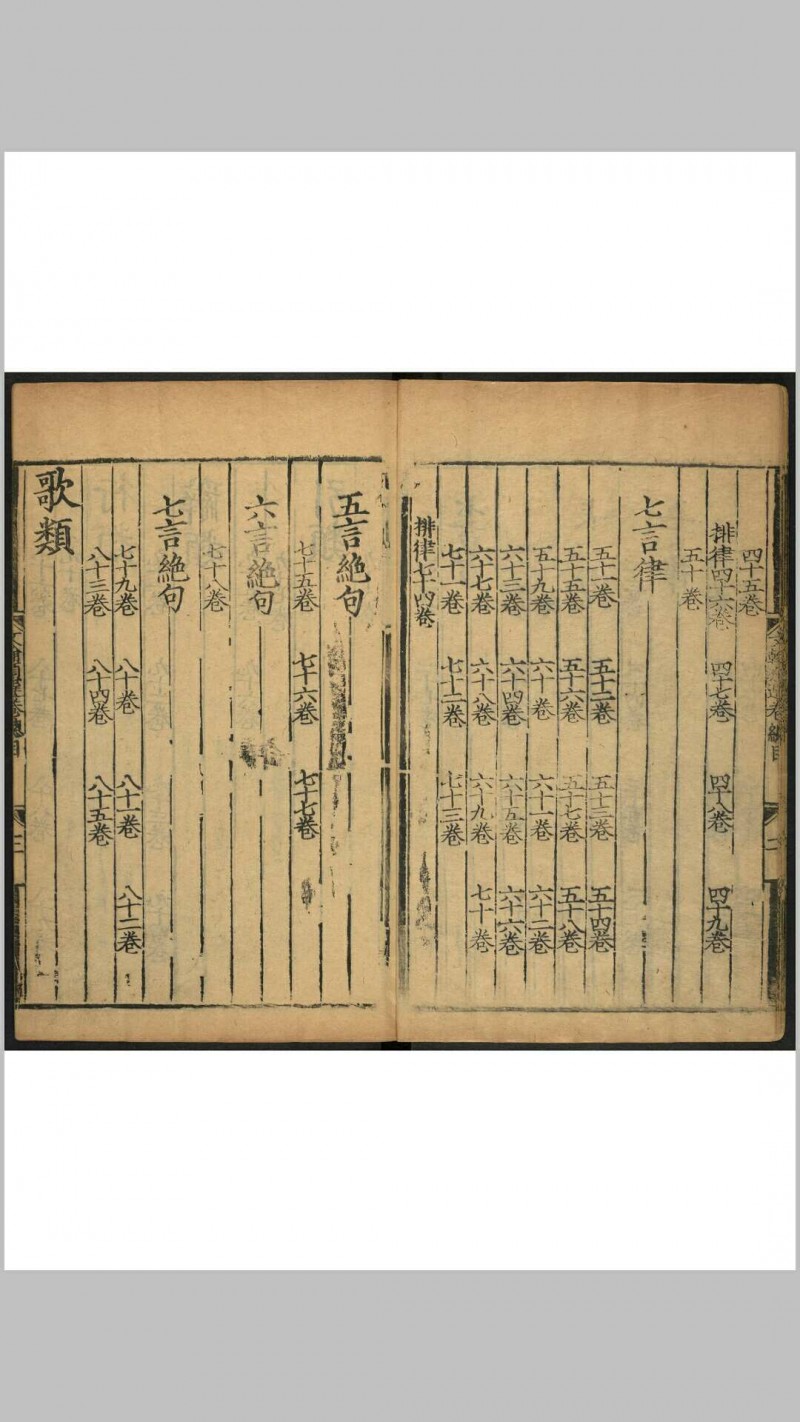 四十五卷
排律四十六卷 四十七卷 四十八卷 四十九卷
五十卷
七言律
五十一卷 五十二卷 五十三卷 五十四卷
五十五卷 五十六卷 五十七卷 五十八卷
五十九卷 六十卷 六十一卷 六十二卷
六十三卷 六十四卷 六十五卷 六十六卷
六十七卷 六十八卷 六十九卷 七十卷
七十一卷 七十二卷 七十三卷
排律七十四卷
五言絶句
七十五卷 七十六卷 七十七卷
六言絶句
七十八卷
七言絶句
七十九卷 八十卷 八十一卷 八十二卷
八十三卷 八十四卷 八十五卷
歌類